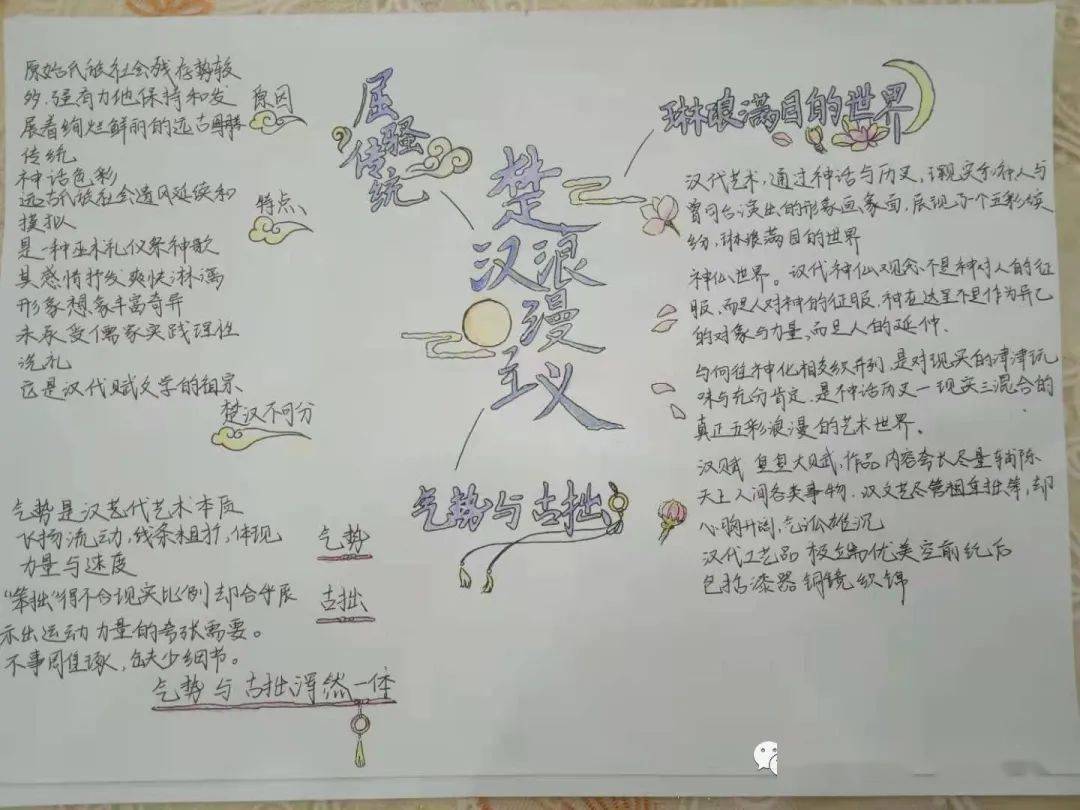 楚汉浪漫主义
屈骚传统
原因
原始氏族社会残存势较
多,强有力地保持和发
展着绚烂鲜丽的远古图腾
传统
特点
神话色彩
远古氏族社会遗风延续和
模拟
是一种巫术礼仪祭神歌
其感情抒发爽快淋漓
形象想象丰富奇异
未承受儒家实践理性
洗礼
它是汉代赋文学的祖宗
楚汉不可分
琳琅满目的世界
汉代艺术,通过神话与历史,现实和神人与
兽同台演出的形象画象面,展现了个五彩缤
纷,琳琅满目的世界
神仙世界。汉代神仙观念不是神对人的征
服,而是人对神的征服,神在这里不是作为异己
的对象与力量,而是人的延伸.
与何往神化相交织并列,是对现实的津津玩
味与充分肯定,是神话历史一现实三混合的
真正五彩浪漫的艺术世界。
汉赋 大赋,作品内容夸长尽量铺陈
天上人间各类事物.汉文艺尽管粗重拙笨,却
心胸开阔,气派雄沉
汉代工艺品 极端优美空前绝后
包括漆器铜镜织锦
气势与古拙
气势是汉艺代艺术本质
飞扬流动,线条粗犷,体现
力量与速度
气势
"笨拙"得不合现实比例却合乎展
示出运动力量的夸张需要。
不事周佳琢,缺少细节。
古拙
气势与古拙浑然一体